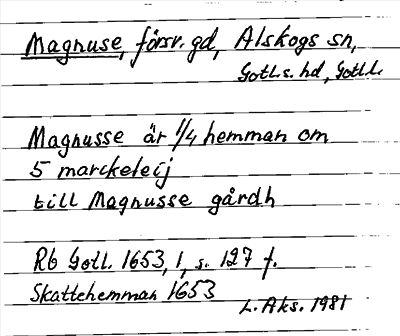 Magnuse, försv. gd, Alskogs sn,
Gotl.s. hd, Gotl.l.
Magnusse är 1/4 hemman om
5 marckeleij
till Magnusse gårdh
Rb Gotl. 1653, 1, s. 127 f.
Skattehemman 1653
L. Aks. 1981